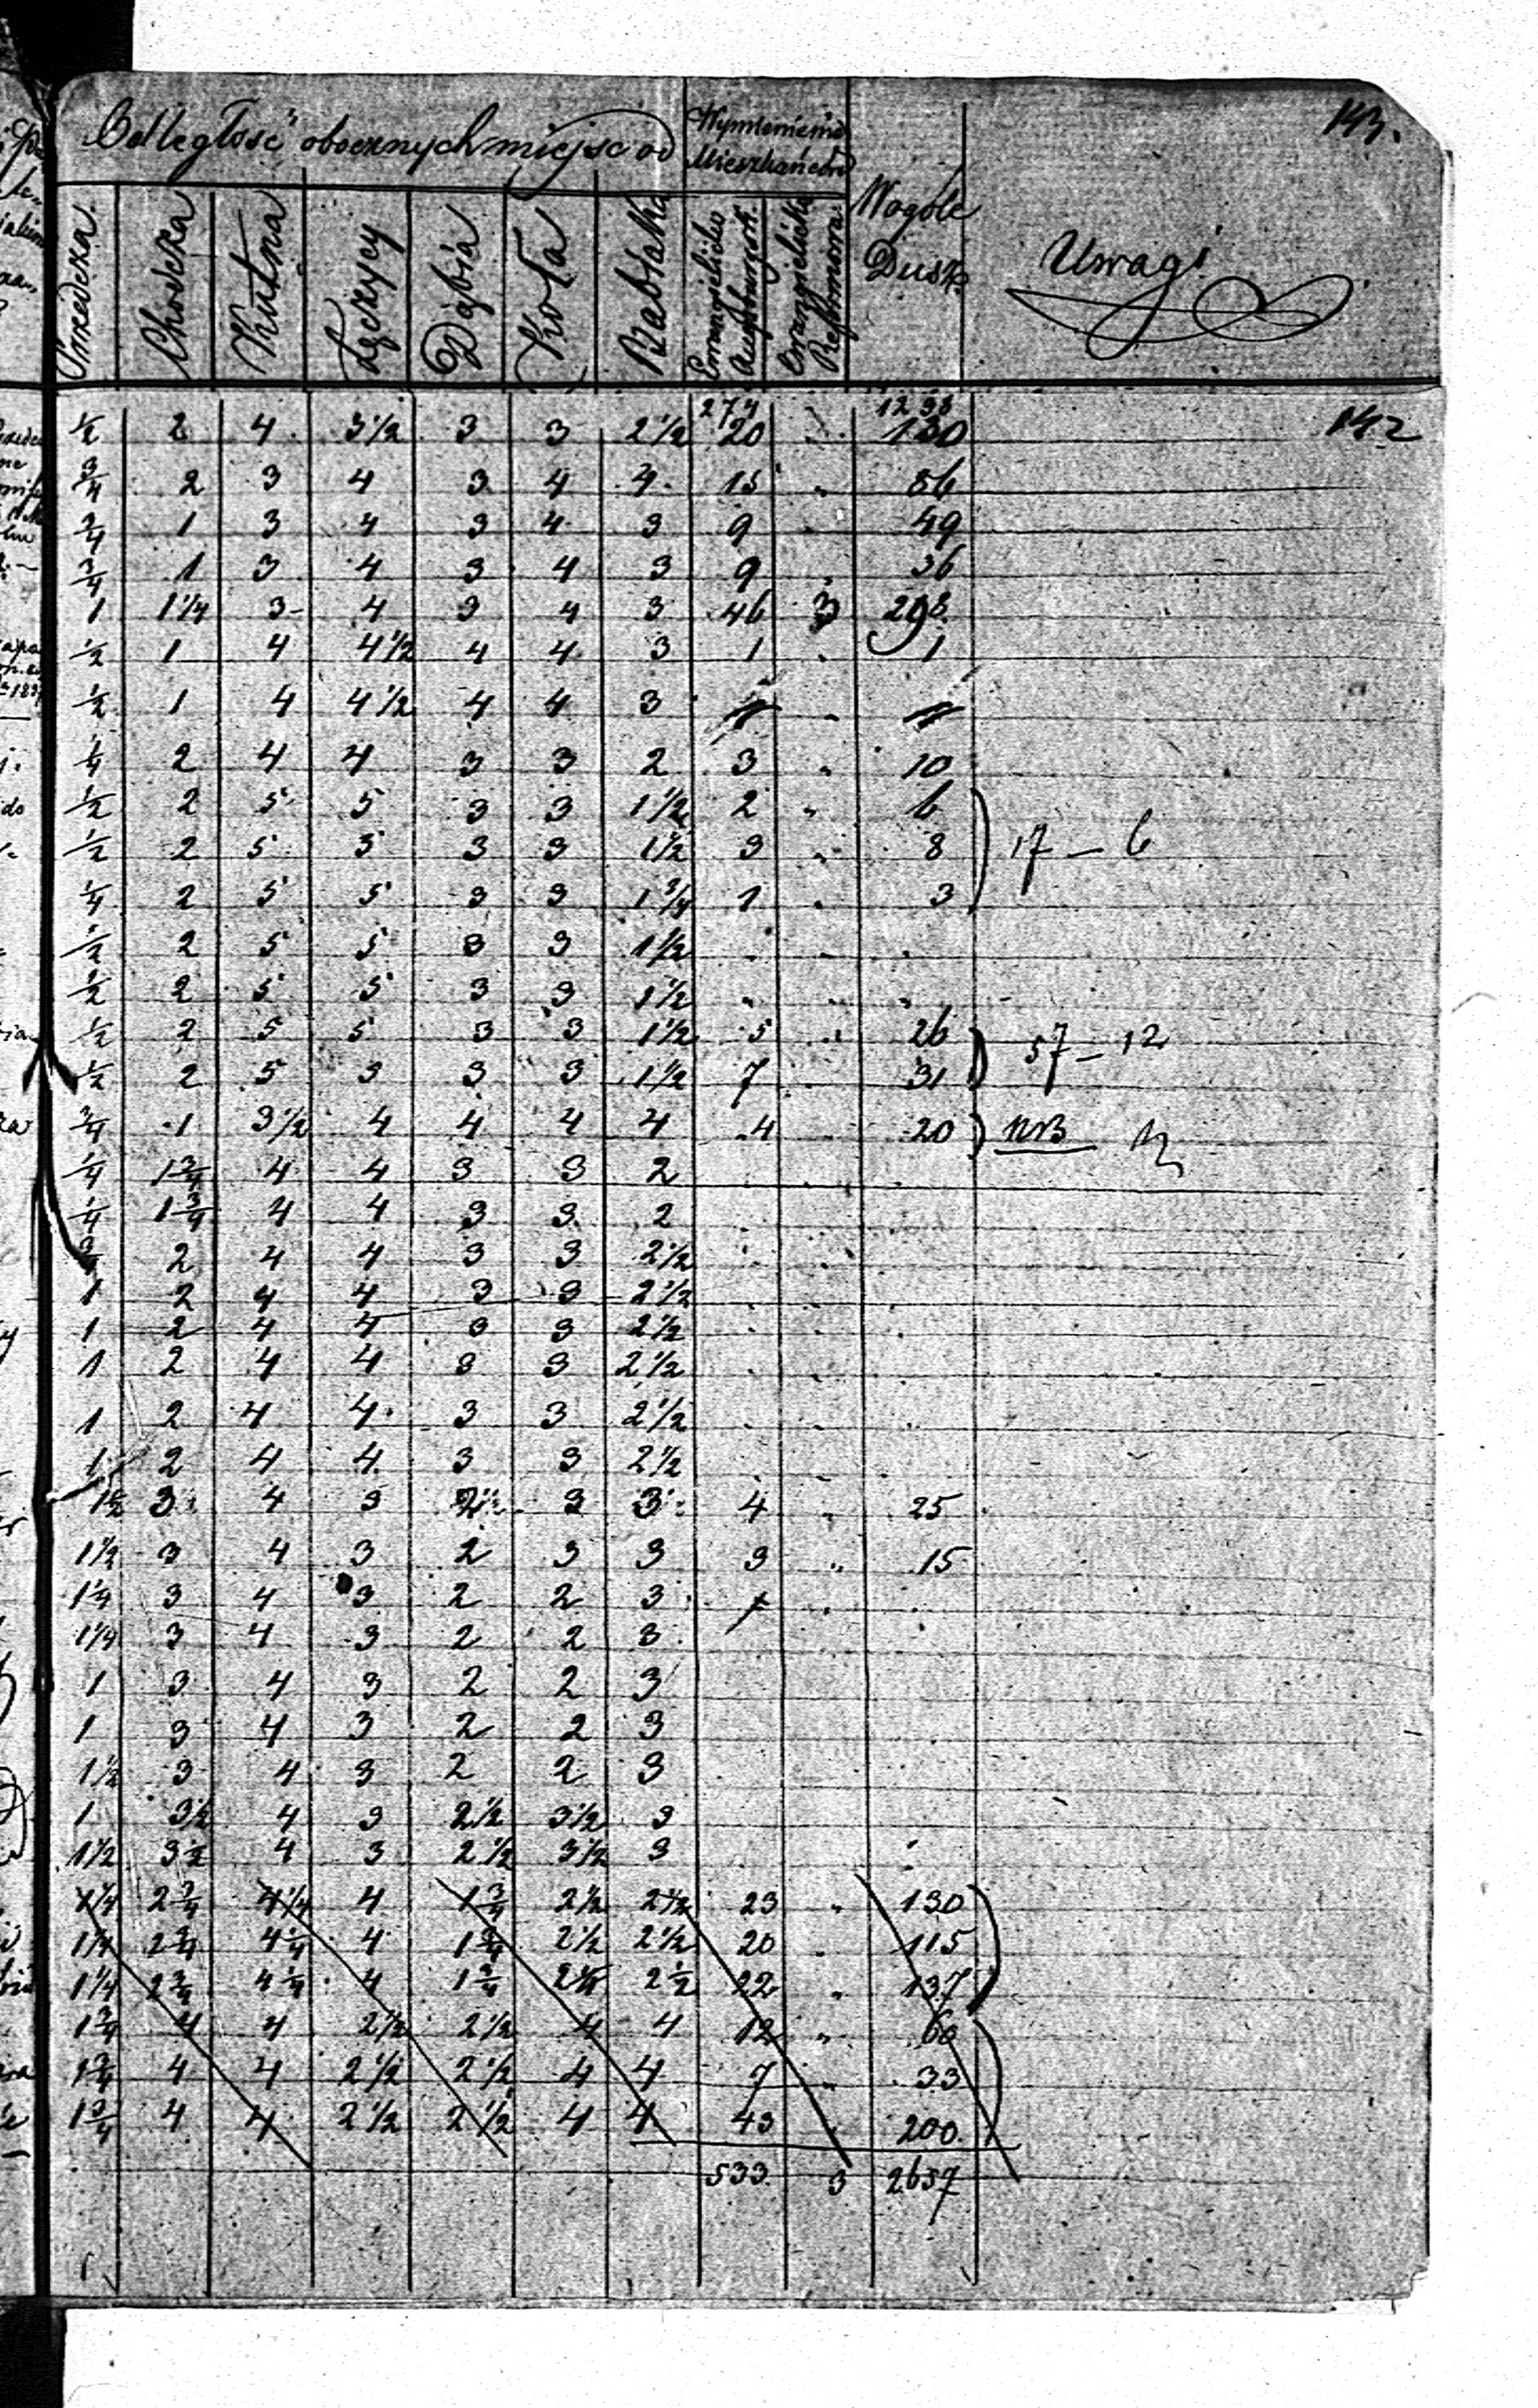 143.
Odległość obecnych miejsc od
Wymienienie Mieszkańców
Wogóle Dusz
Uwagi
Chodcza Kutna Łęczycy Dąbia Koła Ewangielicko Augsburgsk. Ewangielicko Reformowa.
274 1298
½ 2 4 3½ 3 3 2½ 20 130 142
¾ 2 3 4 3 4 4 15 86
¾ 1 3 4 3 4 3 9 49
¾ 1 3 4 3 4 3 9 36
1 1¼ 3 4 3 4 3 46 3 298
½ 1 4 4½ 4 4 3 1 1
½ 1 4 4½ 4 4 3
¼ 2 4 4 3 3 2 3 10
½ 2 5 5 3 3 1½ 2 6
½ 2 5 5 3 3 1½ 3 8 17 — 6
¼ 2 5 5 3 3 1¾ 1 3
½ 2 5 5 3 3 1½
½ 2 5 5 3 3 1½
½ 2 5 5 3 3 1½ 5 26 57 — 12
½ 2 5 3 3 3 1½ 7 31
¾ 1 3½ 4 4 4 4 4 20 NB
¼ 1¾ 4 4 3 3 2
¼ 1¾ 4 4 3 3 2
¾ 2 4 4 3 3 2½
1 2 4 4 3 3 2½
1 2 4 4 3 3 2½
1 2 4 4 3 3 2½
1 2 4 4 3 3 2½
1 2 4 4 3 3 2½
1½ 3 4 3 2½ 3 3 4 25
1½ 3 4 3 2 3 3 3 15
1¼ 3 4 3 2 2 3
1¼ 3 4 3 2 2 3
1 3 4 3 2 2 3
1 3 4 3 2 2 3
1½ 3 4 3 2 2 3
1 3½ 4 3 2½ 3½ 3
1½ 3½ 4 3 2½ 3½ 3
1¼ 2¾ 4¼ 4 1¾ 2½ 2½ 23 130
1¼ 2¾ 4¼ 4 1¾ 2½ 2½ 20 115
1¼ 2¾ 4¼ 4 1¾ 2½ 2½ 22 137
1¾ 4 4 2½ 2½ 4 4 12 60
1¾ 4 4 2½ 2½ 4 4 7 33
1¾ 4 4 2½ 2½ 4 4 43 200
533 3 2657